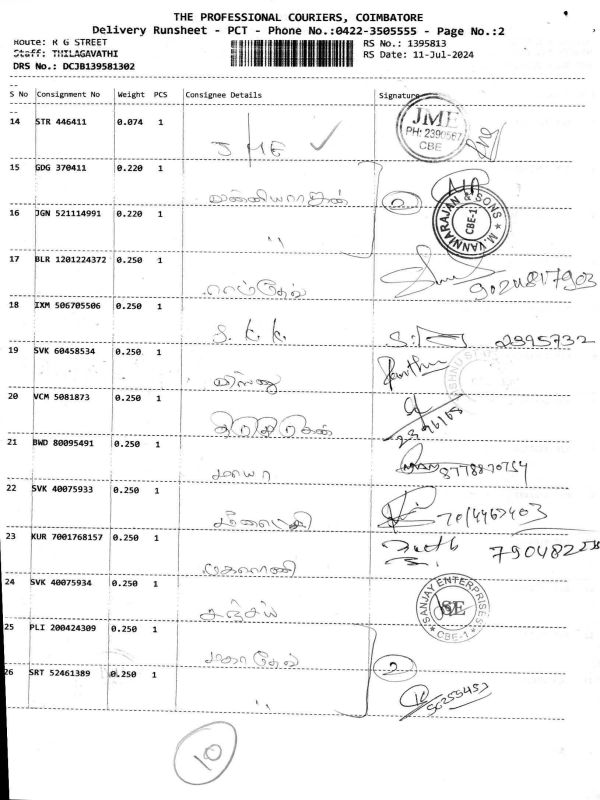 THE PROFESSIONAL COURIERS, COIMBATORE
Delivery Runsheet - PCT - Phone No.:0422-3505555 - Page No.:2
Route: R G STREET
RS No.: 1395813
Staff: THILAGAVATHI
RS Date: 11-Jul-2024
DRS No.: DCJB139581302
S No Consignment No Weight PCS Consignee Details Signature
14 STR 446411 0.074 1
J M E ✓
JME
PH: 2390567
CBE
15 GDG 370411 0.220 1
வன்னியராஜன்
2
16 JGN 521114991 0.220 1
"
M. VANNIARAJAN & SONS
CBE-1
17 BLR 1201224372 0.250 1
ராம்தேவ்
18 IXM 506705506 0.250 1
S. K. K.
2395732
19 SVK 60458534 0.250 1
20 VCM 5081873 0.250 1
21 BWD 80095491 0.250 1
மாயா
22 SVK 40075933 0.250 1
23 KUR 7001768157 0.250 1
24 SVK 40075934 0.250 1
சஞ்சய்
SANJAY ENTERPRISES
SE
CBE-1
25 PLI 200424309 0.250 1
மகாதேவ்
2
26 SRT 52461389 0.250 1
"
10